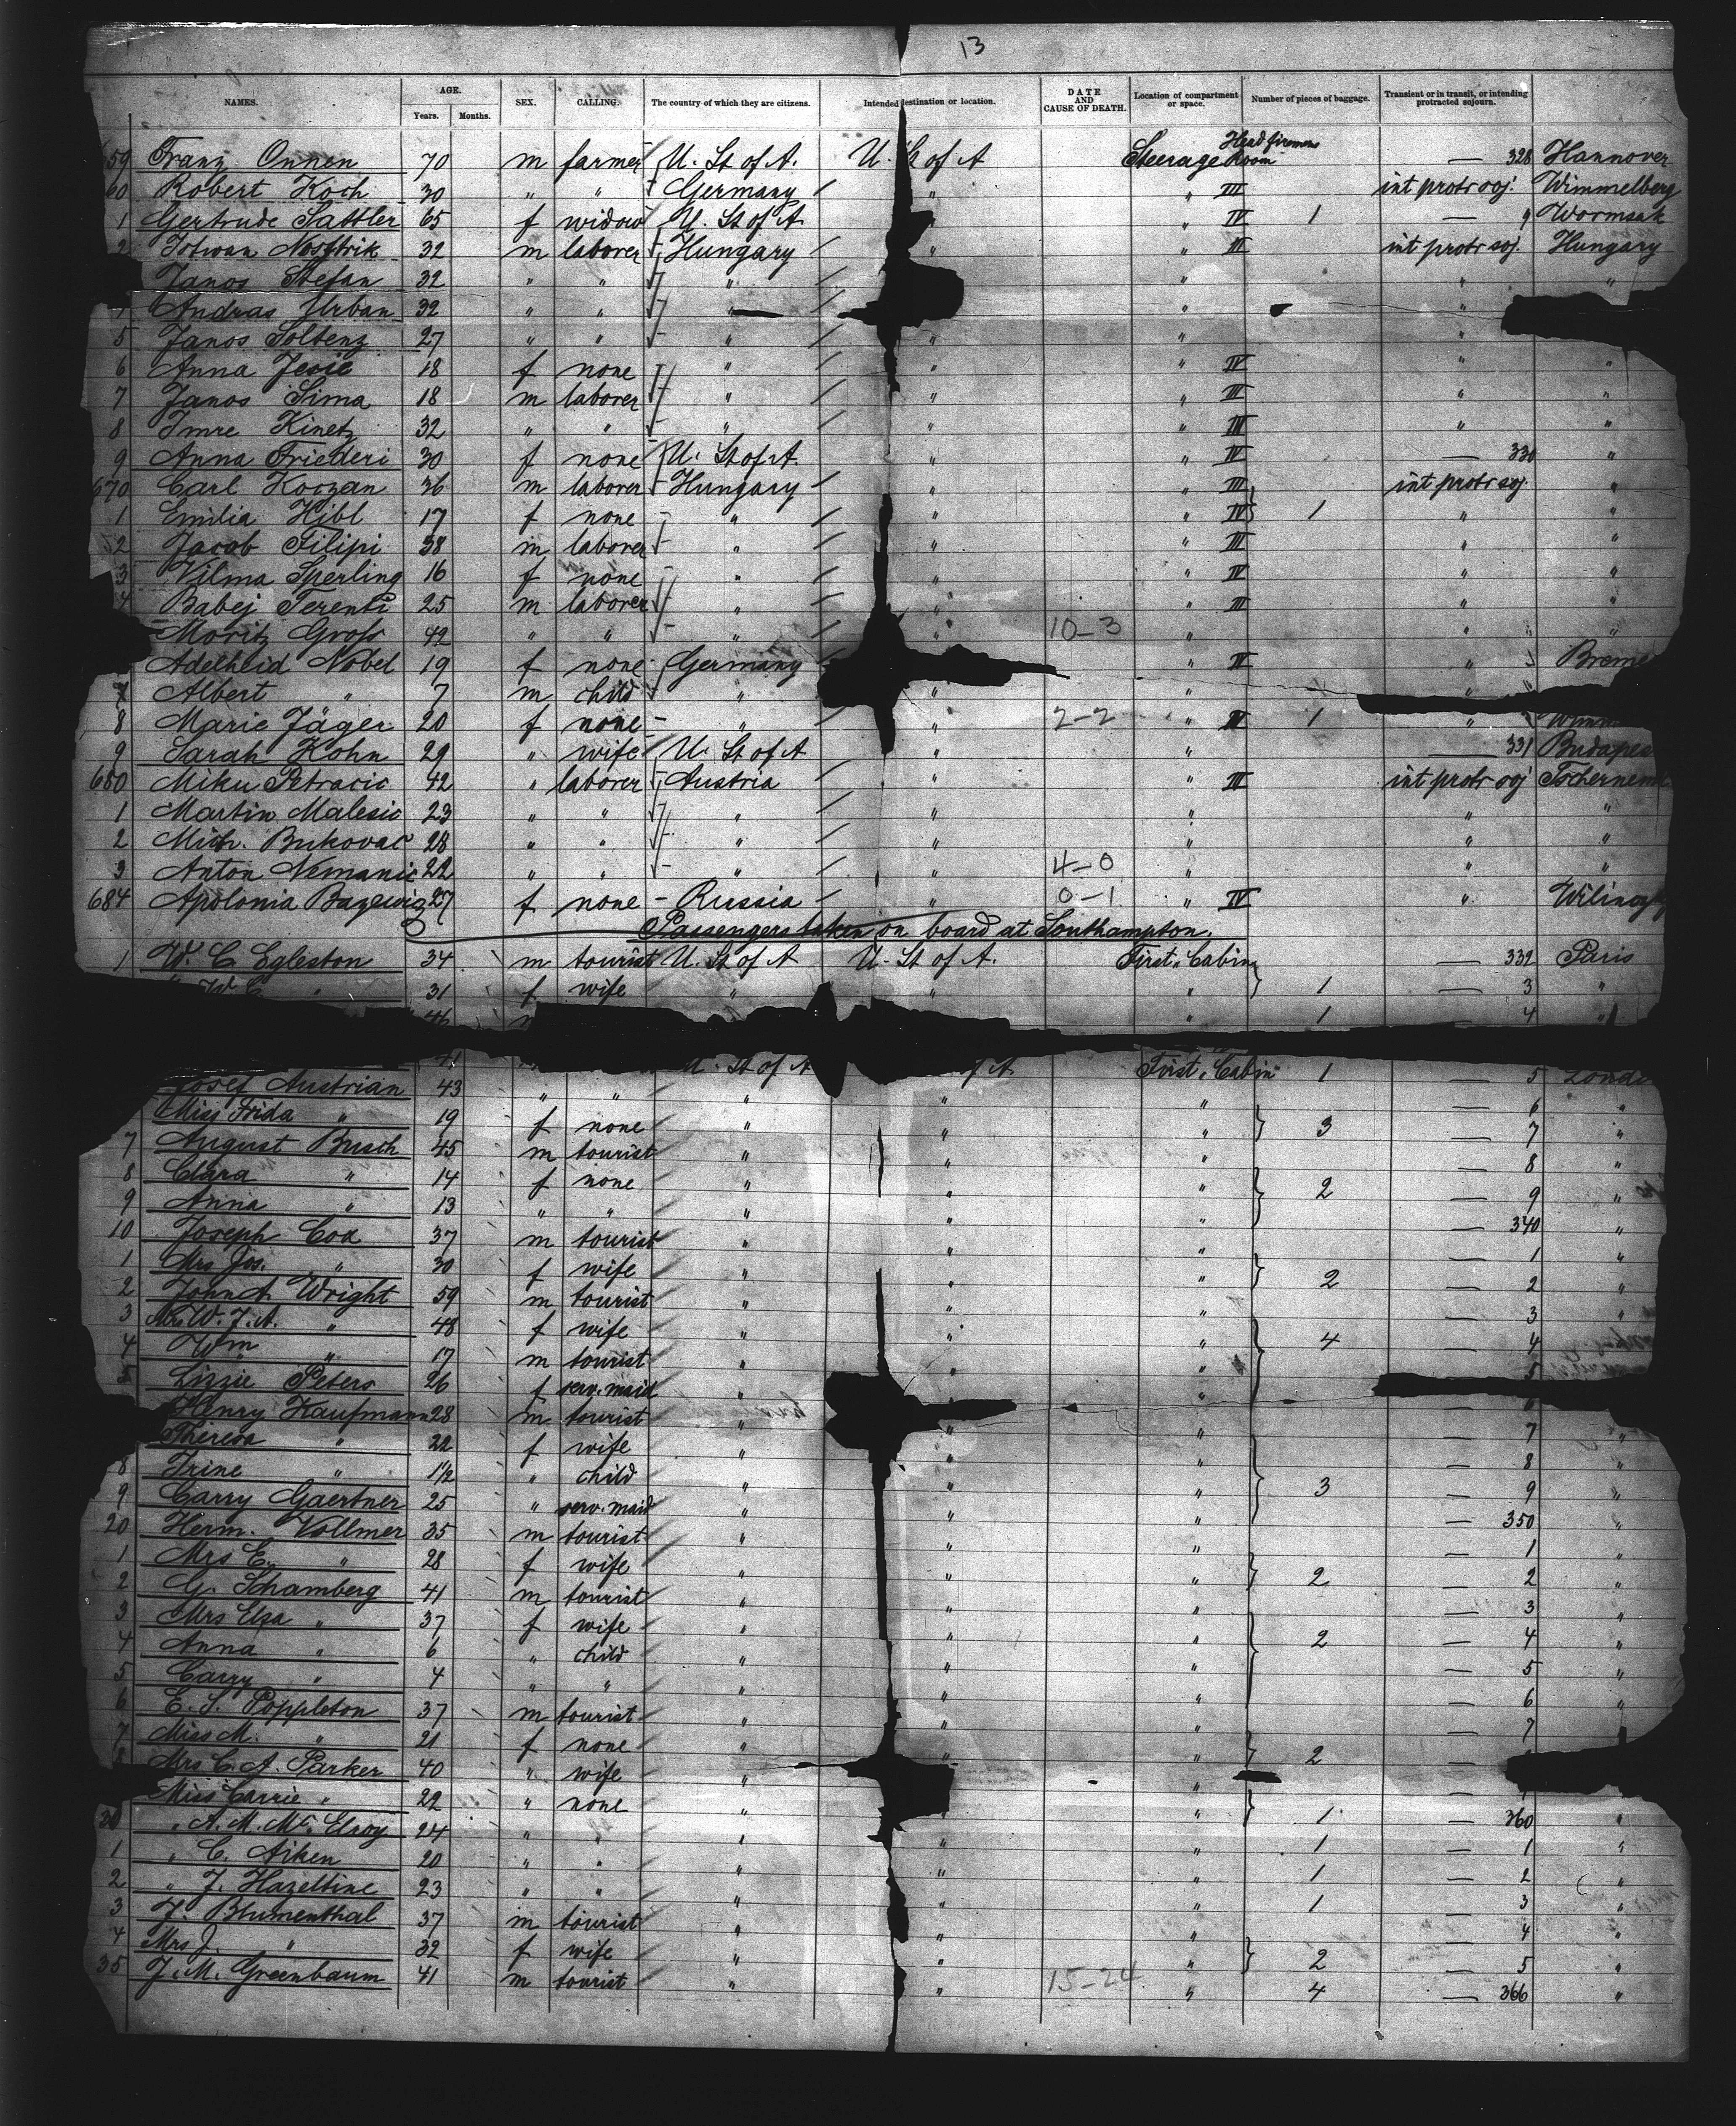 13
NAMES. AGE. Years. Months. SEX. CALLING. The country of which they are citizens. Intended destination or location. DATE AND CAUSE OF DEATH. Location of compartment or space. Number of pieces of baggage. Transient or in transit, or intending protracted sojourn.
59 Franz Onnen 70 m farmer U. St of A. U. St of A Steerage Head firemens Room — 328 Hannover
60 Robert Koch 30 " " Germany " " III int protr soj. Wimmelberg
1 Gertrude Sattler 65 f widow U. St of A " IV 1 — 9
2 32 m laborer Hungary " " III int protr soj. Hungary
Janos Stefan 32 " " " " " "
Andras Urban 32 " " " "
5 Janos Soltenz 27 " " " " " "
6 Anna Jesic 18 f none " " " IV " "
7 Janos Sima 18 m laborer " " " III " "
8 Imre Kinetz 32 " " " " " III " "
9 Anna Friederi 30 f none U. St of A. " " IV — 330 "
670 Carl Koczan 36 m laborer Hungary " " III int protr soj. "
1 Emilia Hibl 17 f none " " " IV 1 " "
2 Jacob Filipi 38 m laborer " " " III " "
3 Vilma Sperling 16 f none " " " IV " "
4 Babej Terenti 25 m laborer " " " III " "
Moritz Gross 42 " " " " 10-3 " " "
Adelheid Nobel 19 f none Germany " IV " Breme
7 Albert " 7 m child " " " "
8 Marie Jäger 20 f none " " 2-2 " IV 1 "
9 Sarah Kohn 29 " wife U. St of A " — 331 Budapes
680 Miku Petracic 42 " laborer Austria " " III int protr soj Tschernem
1 Martin Malesic 23 " " " " " " "
2 Mich. Bukovac 28 " " " " " " "
3 Anton Nemanic 22 " " " " 4-0 " " "
684 Apolonia Bazewiz 27 f none Russia " 0-1 " IV "
Passengers taken on board at Southampton.
1 W. C. Egleston 34 m tourist U. St of A U. St of A. First Cabin — 332 Paris
" W. C. " 31 f wife " " " 1 — 3 "
46 " 1 — 4 "
41 U. St of A of A First Cabin 1 — 5 Londo
Josef Austrian 43 " " " " " — 6 "
Miss Frida " 19 f none " " " 3 — 7 "
7 August Busch 45 m tourist " " " — 8 "
8 Clara " 14 f none " " " 2 — 9 "
9 Anna " 13 " " " " " — 340 "
10 Joseph Cox 37 m tourist " " " — 1 "
1 Mrs Jos. " 30 f wife " " " 2 — 2 "
2 John A Wright 59 m tourist " " " — 3 "
3 Mrs W. J. A. " 48 f wife " " " 4 — 4 "
4 Wm " 17 m tourist " " " — 5
5 Lizzie Peters 26 f serv. maid " " — 6
Henry Kaufmann 28 m tourist " " " — 7 "
Theresa " 22 f wife " " " — 8 "
8 Irine " 1½ " child " " " 3 — 9 "
9 Carry Gaertner 25 " serv. maid " " " — 350 "
20 Herm. Vollmer 35 m tourist " " " — 1 "
1 Mrs E. " 28 f wife " " " 2 — 2 "
2 G. Schamberg 41 m tourist " " " — 3 "
3 Mrs Elsa " 37 f wife " " " 2 — 4 "
4 Anna " 6 " child " " " — 5 "
5 Carry " 4 " " " " " — 6 "
6 E. S. Poppleton 37 m tourist " " " — 7 "
7 Miss M. " 21 f none " " " 2 —
8 Mrs C. A. Parker 40 " wife " " —
Miss Carrie " 22 " none " " 1 — 360 "
30 " A. M. Mc. Elroy 24 " " " " " 1 — 1 "
1 " C. Aiken 20 " " " " " 1 — 2 "
2 " J. Hazeltine 23 " " " " " 1 — 3 "
3 F. Blumenthal 37 m tourist " " " — 4 "
4 Mrs J. " 32 f wife " " " 2 — 5 "
35 J. M. Greenbaum 41 m tourist " " 15-24 " 4 — 366 "